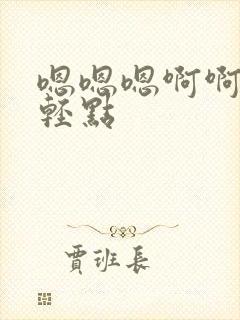 嗯嗯嗯啊啊
輕點
賈班長